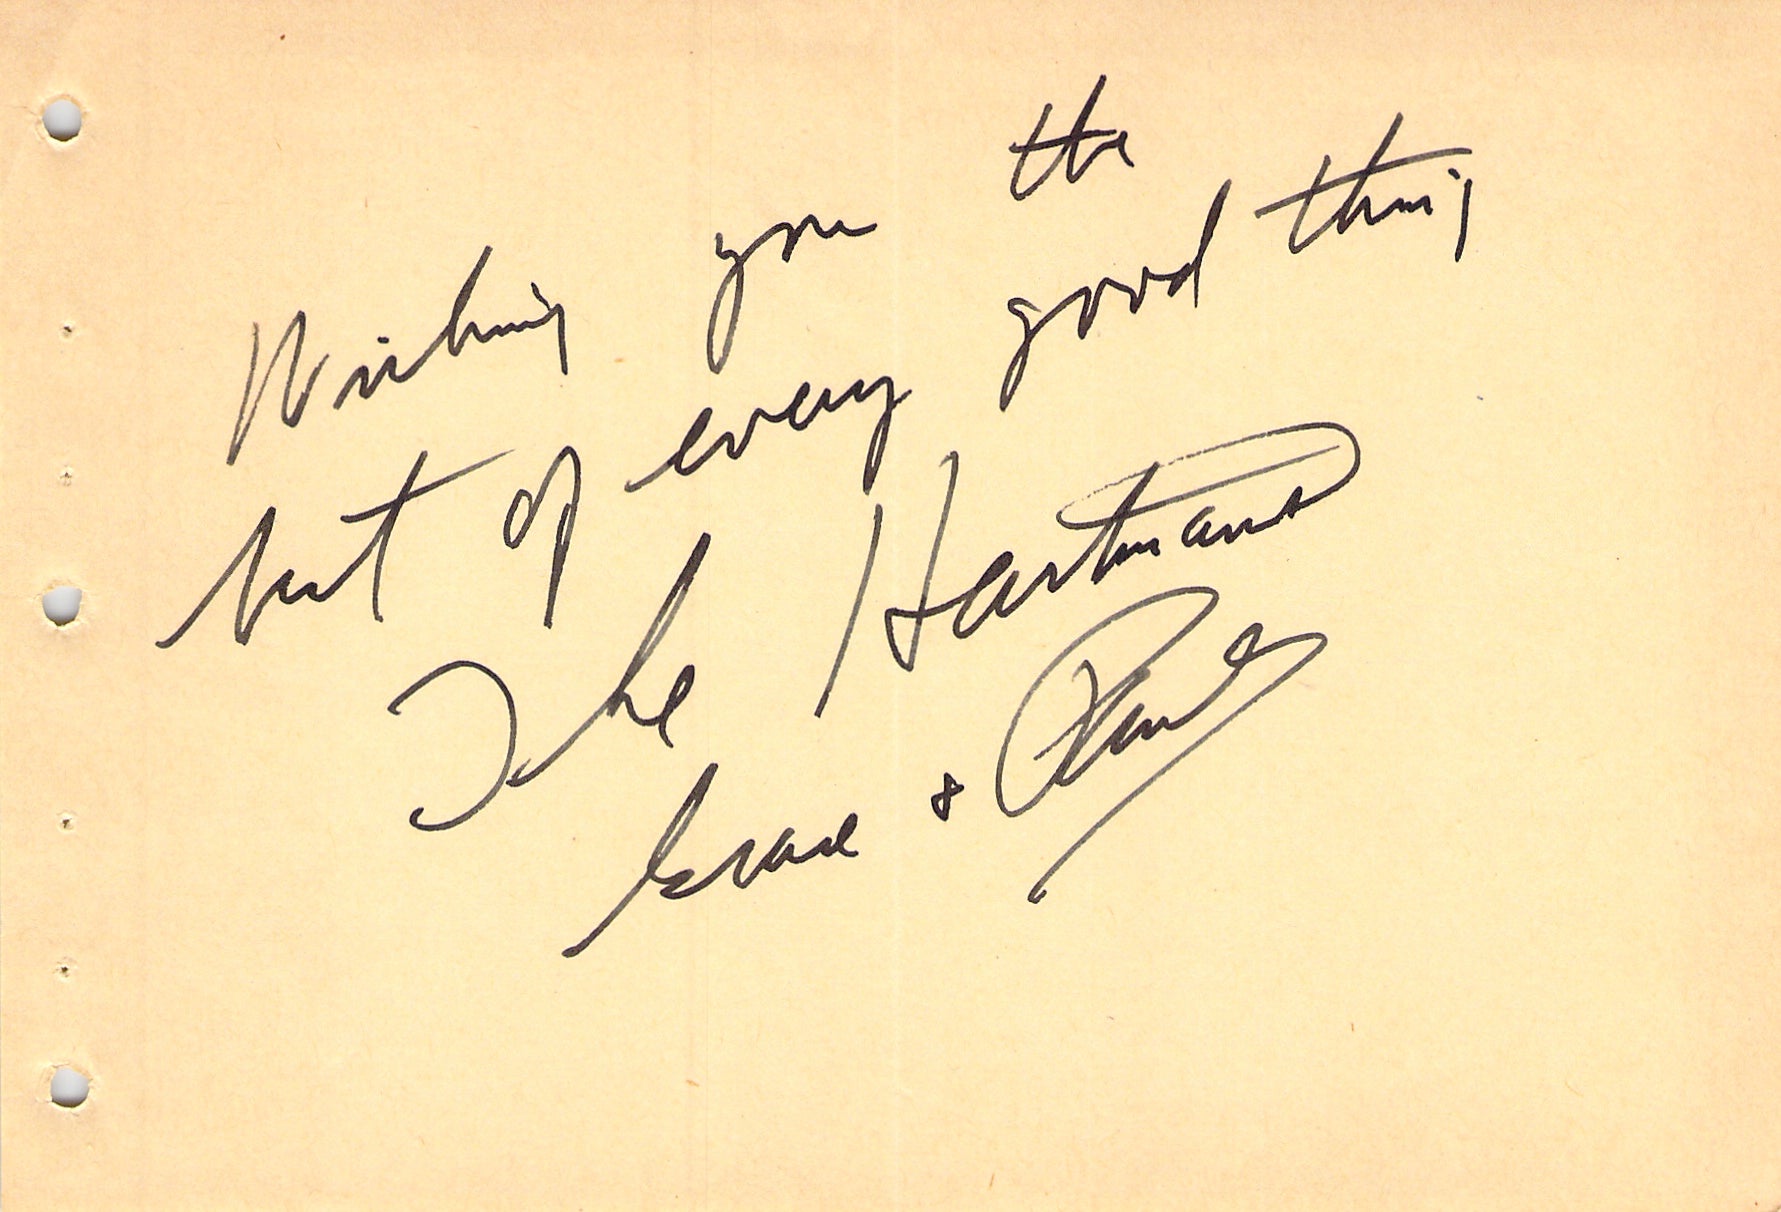 Wishing you the
best of every good thing
The Hartmans
Grace & Paul